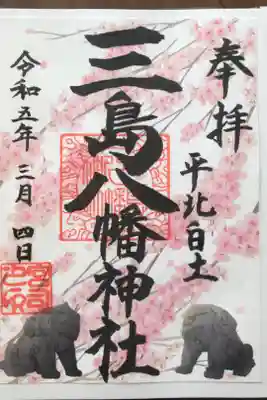 奉拝
平北白土
三島八幡神社
令和五年三月四日